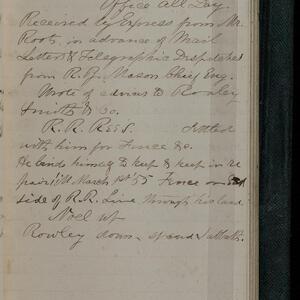 Office all Day
Received by Express from Mr.
Root, in advance of Mail
Letters & Telegraphic Dispatches
from R. B. Mason Chief Eng.
Wrote of to Rowley
Smith & Co.
R. R. Rees. Settled
with him for Fence &c.
He binds himself to keep & keep in re
pair till March 1st 55 Fence on
side of R. R. Line through his land
Noel up
Rowley down